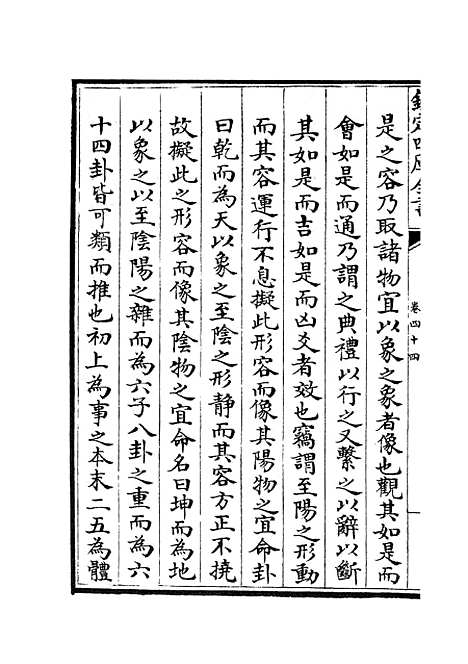 欽定四庫全書
卷四十四
是之容乃取諸物宜以象之象者像也觀其如是而
會如是而通乃謂之典禮以行之又繫之以辭以斷
其如是而吉如是而凶爻者效也竊謂至陽之形動
而其容運行不息擬此形容而像其陽物之宜命卦
曰乾而為天以象之至陰之形靜而其容方正不撓
故擬此之形容而像其陰物之宜命名曰坤而為地
以象之以至陰陽之雜而為六子八卦之重而為六
十四卦皆可類而推也初上為事之本末二五為體